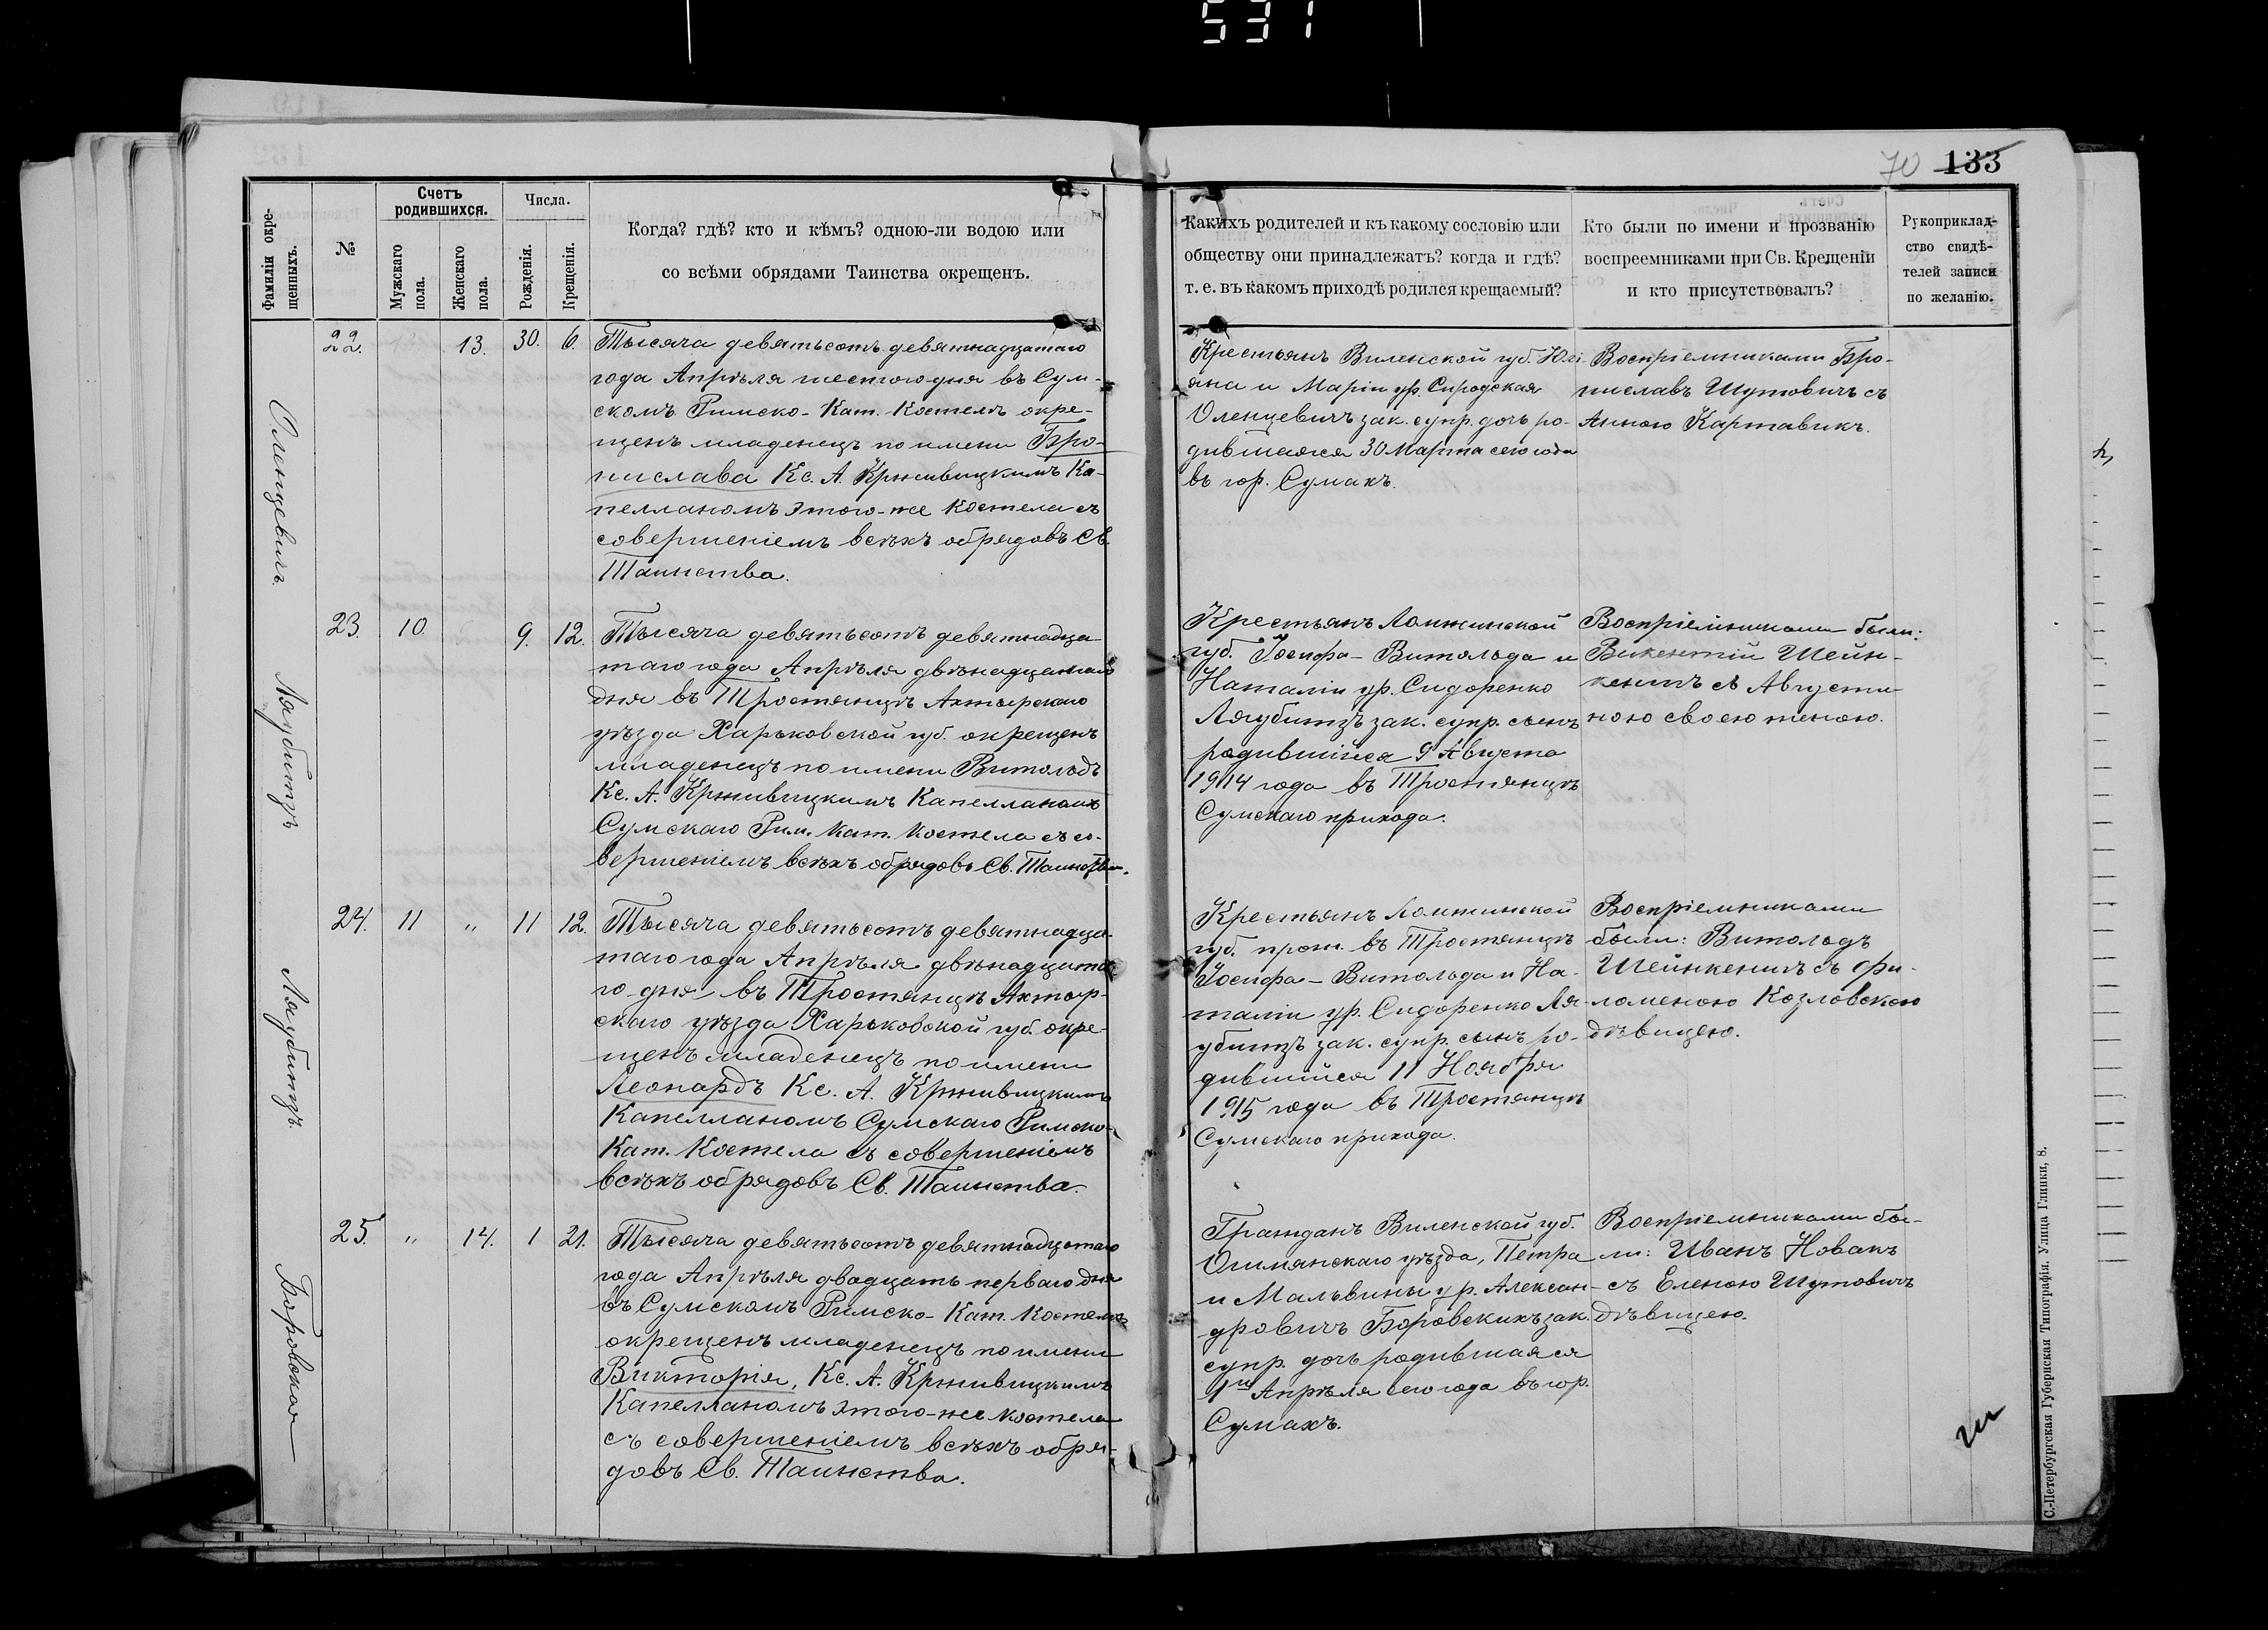 531
70 133
Фамиліи окрещенныхъ.
№
Счетъ родившихся.
Мужскаго пола.
Женскаго пола.
Числа.
Рожденія.
Крещенія.
Когда? гдѣ? кто и кѣмъ? одною-ли водою или
со всѣми обрядами Таинства окрещенъ.
Какихъ родителей и къ какому сословію или
обществу они принадлежатъ? когда и гдѣ?
т. е. въ какомъ приходѣ родился крещаемый?
Кто были по имени и прозванію
воспреемниками при Св. Крещеніи
и кто присутствовалъ?
Рукоприклад-
ство свидѣ-
телей записи
по желанію.
Оленцевичъ.
22. 13. 30. 6.
Тысяча девятьсотъ девятнадцатаго
года Апрѣля шестого дня въ Сум-
скомъ Римско-Кат. Костелѣ окре-
щенъ младенецъ по имени Бро-
нислава Кс. А. Крживицкимъ Ка-
пелланомъ этого-же Костела съ
совершеніемъ всѣхъ обрядовъ Св.
Таинства.
Крестьянъ Виленской губ. Юлі-
яна и Маріи ур. Сиродская
Оленцевичъ зак. супр. дочь ро-
дившаяся 30 Марта сего года
въ гор. Сумахъ.
Воспріемниками Бро-
ниславъ Шутовичъ съ
Анною Картавикъ.
Лягубитцъ
23. 10. 9. 12.
Тысяча девятьсотъ девятнадца-
таго года Апрѣля двѣнадцатаго
дня въ Тростянцѣ Ахтырскаго
уѣзда Харьковской губ. окрещенъ
младенецъ по имени Витольдъ
Кс. А. Крживицкимъ Капелланомъ
Сумскаго Рим. Кат. Костела съ со-
вершеніемъ всѣхъ обрядовъ Св. Таинства.
Крестьянъ Ломжинской
губ. Іосифа-Витольда и
Наталіи ур. Сидоренко
Лягубитцъ зак. супр. сынъ
родившійся 9 Августа
1914 года въ Тростянцѣ
Сумскаго прихода.
Воспріемниками были:
Викентій Шейн-
кенитъ съ Августи-
ною своею женою.
Лягубитцъ.
24. 11 " 11 12.
Тысяча девятьсотъ девятнадца-
таго года Апрѣля двѣнадцата-
го дня въ Тростянцѣ Ахтыр-
скаго уѣзда Харьковской губ. окре-
щенъ младенецъ по имени
Леонардъ Кс. А. Крживицкимъ
Капелланомъ Сумскаго Римско-
Кат. Костела съ совершеніемъ
всѣхъ обрядовъ Св. Таинства.
Крестьянъ Ломжинской
губ. прож. въ Тростянцѣ
Іосифа-Витольда и На-
таліи ур. Сидоренко Ля-
убитцъ зак. супр. сынъ ро-
дившійся 11 Ноября
1915 года въ Тростянцѣ
Сумскаго прихода.
Воспріемниками
были: Витольдъ
Шейнкенитъ съ Фи-
ломеною Козловскою
дѣвицею.
Боровская
25. " 14. 1 21.
Тысяча девятьсотъ девятнадцатаго
года Апрѣля двадцать перваго дня
въ Сумскомъ Римско-Кат. Костелѣ
окрещенъ младенецъ по имени
Викторія, Кс. А. Крживицкимъ
Капелланомъ этого-же костела
съ совершеніемъ всѣхъ обря-
довъ Св. Таинства.
Гражданъ Виленской губ.
Ошмянскаго уѣзда, Петра
и Мальвины ур. Алексан-
дровичъ Боровскихъ зак.
супр. дочь родившаяся
1го Апрѣля сего года въ гор.
Сумахъ.
Воспріемниками бы-
ли: Иванъ Новакъ
съ Еленою Шутовичъ
дѣвицею.
С.-Петербургская Губернская Типографія. Улица Глинки, 8.